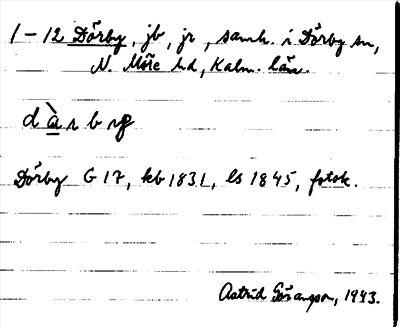 1-12 Dörby, jb, jr, samh. i Dörby sn,
N. Möre hd, Kalm. län.
Dörby G 17, kb 1831, ls 1845, fotok.
Astrid Göransson, 1943.